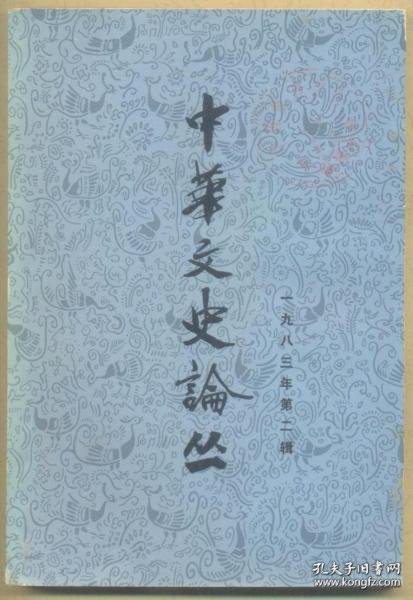 中華文史論丛
一九八三年第二辑
孔夫子旧书网
www.kongfz.com